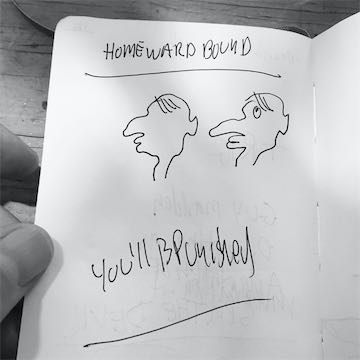 HOMEWARD BOUND
YOU'll BPunished